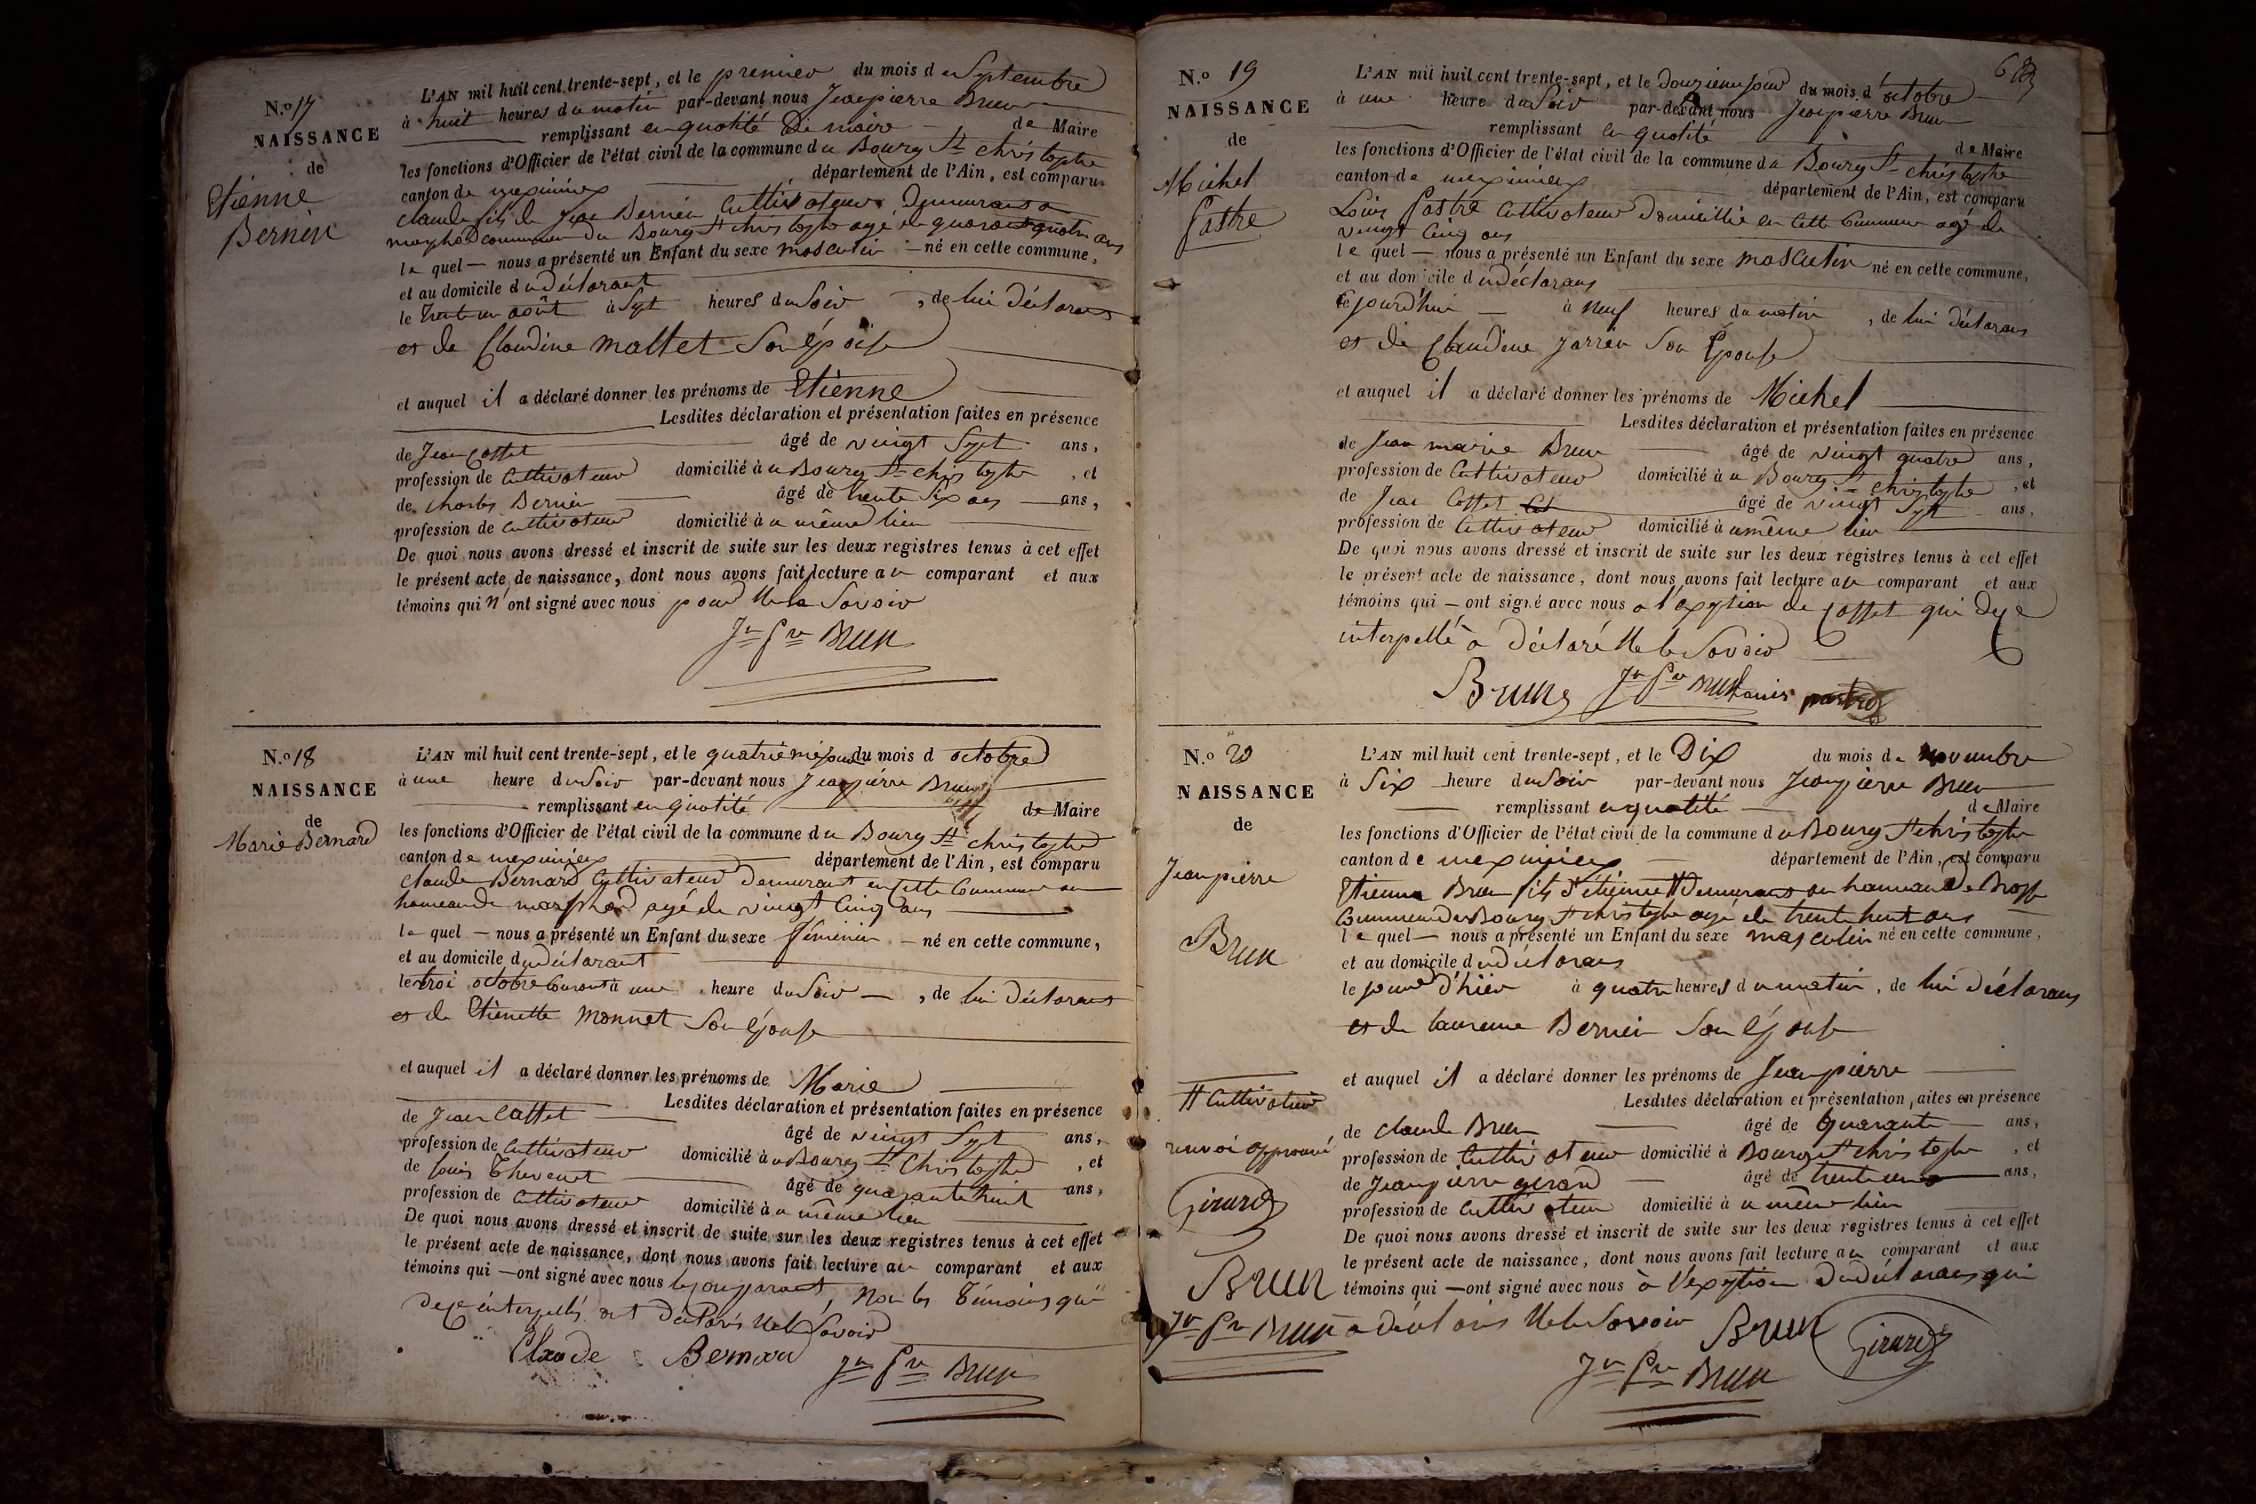 N.o 17
NAISSANCE
de
Etienne
Bernin
L'AN mil huit cent trente-sept, et le premier du mois de Septembre
à huit heures du matin par-devant nous Jeanpierre Brun
remplissant en qualité De maire de Maire
les fonctions d'Officier de l'état civil de la commune du Bourg St christophe
canton de meximieux département de l'Ain, est comparu
claude fils de Jean Bernin Cultivateur Demeurant a
commune du Bourg St christophe agé de quarante quatre ans
le quel — nous a présenté un Enfant du sexe masculin — né en cette commune,
et au domicile du déclarant
le trente un août à Sept heures du Soir, de lui déclarant
et de Claudine mallet Son épouse
et auquel il a déclaré donner les prénoms de Etienne
Lesdites déclaration et présentation faites en présence
de Jean Coffet âgé de vingt Sept ans,
profession de Cultivateur domicilié à u Bourg St christophe, et
de charles Bernin âgé de trente Six ans — ans,
profession de cultivateur domicilié à u même lieu
De quoi nous avons dressé et inscrit de suite sur les deux registres tenus à cet effet
le présent acte de naissance, dont nous avons fait lecture au comparant et aux
témoins qui n'ont signé avec nous pour Ne le Savoir
Jn Pre Brun
N.o 18
NAISSANCE
de
Marie Bernard
L'AN mil huit cent trente-sept, et le quatrième jour du mois d octobre
à une heure du Soir par-devant nous Jeanpierre Brun
remplissant en qualité de Maire
les fonctions d'Officier de l'état civil de la commune du Bourg St christophe
canton de meximieux département de l'Ain, est comparu
claude Bernard Cultivateur Demeurant en cette Commune au
hameau de agé de vingt Cinq ans
le quel — nous a présenté un Enfant du sexe féminin — né en cette commune,
et au domicile du déclarant
le troi octobre Courant à une heure du Soir —, de lui déclarant
et de Etienette Monnet Son épouse
et auquel il a déclaré donner les prénoms de Marie
Lesdites déclaration et présentation faites en présence
de Jean Coffet âgé de vingt Sept ans,
profession de Cultivateur domicilié à u Bourg St Christophe, et
de louis Thevenet âgé de quarante huit ans,
profession de Cultivateur domicilié à u même lieu
De quoi nous avons dressé et inscrit de suite sur les deux registres tenus à cet effet
le présent acte de naissance, dont nous avons fait lecture au comparant et aux
témoins qui — ont signé avec nous le comparant, Non les témoins qui
de ce interpellés ont Déclarés Ne le Savoir
Claude Bernard Jn Pre Brun
N.o 19
NAISSANCE
de
Michel
Pastre
L'AN mil huit cent trente-sept, et le Douzieme jour du mois d'octobre
à une heure du Soir par-devant nous Jeanpierre Brun
remplissant en qualité de Maire
les fonctions d'Officier de l'état civil de la commune du Bourg St christophe
canton de meximieux département de l'Ain, est comparu
Louis Pastre Cultivateur Domicillié en Cette Commune agé de
vingt Cinq ans
le quel — nous a présenté un Enfant du sexe masculin né en cette commune,
et au domicile du déclarans
cejourd'hui — à Neuf heures du matin, de lui déclarans
et de Claudine Jarren Son Epouse
et auquel il a déclaré donner les prénoms de Michel
Lesdites déclaration et présentation faites en présence
de Jean marie Brun âgé de vingt quatre ans,
profession de Cultivateur domicilié à u Bourg St christophe, et
de Jean Coffet âgé de vingt Sept ans,
profession de Cultivateur domicilié à u même lieu
De quoi nous avons dressé et inscrit de suite sur les deux régistres tenus à cet effet
le présent acte de naissance, dont nous avons fait lecture au comparant et aux
témoins qui — ont signé avec nous a l'exeption de Coffet qui de ce
interpellé a Déclaré Ne le Savoir
Brun Jn Pre Brun Louis pastre
N.o 20
NAISSANCE
de
Jeanpierre
Brun
L'AN mil huit cent trente-sept, et le Dix du mois de Novembre
à Six heure du Soir par-devant nous Jeanpierre Brun
remplissant en qualité de Maire
les fonctions d'Officier de l'état civil de la commune du Bourg St christophe
canton de meximieux département de l'Ain, est comparu
Etienne Brun fils d'étienne # Demeurant au hameau De
Commune du Bourg St christophe agé de trente huit ans
le quel — nous a présenté un Enfant du sexe masculin né en cette commune,
et au domicile du déclarans
le jour d'hier à quatre heures du matin, de lui déclarans
et de laurence Bernin Son épouse
et auquel il a déclaré donner les prénoms de Jeanpierre
Lesdites déclaration et présentation faites en présence
de claude Brun âgé de Quarante ans,
profession de Cultivateur domicilié à Bourg St christophe, et
de Jeanpierre girard âgé de trente un ans,
profession de Cultivateur domicilié à u même lieu
De quoi nous avons dressé et inscrit de suite sur les deux registres tenus à cet effet
le présent acte de naissance, dont nous avons fait lecture au comparant et aux
témoins qui — ont signé avec nous à l'exeption Du déclarans qui
a déclaré Ne le Savoir Brun Girard
Jn Pre Brun
# Cultivateur
renvoi approuvé
Girard
Brun
Jn Pre Brun